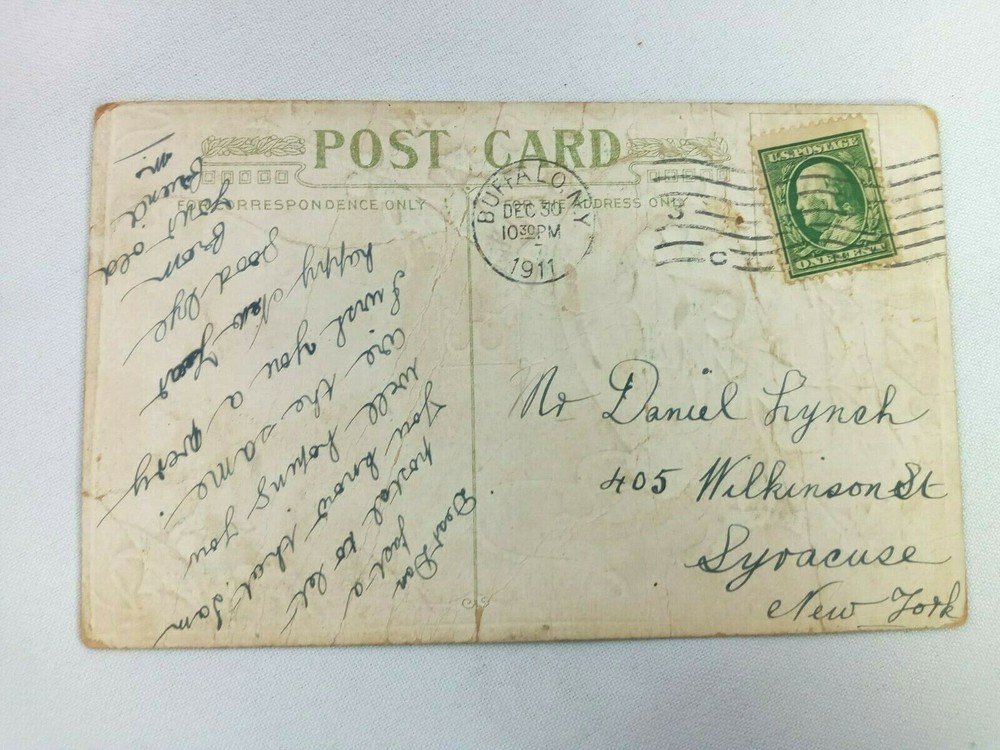 POST CARD
FOR CORRESPONDENCE ONLY
FOR THE ADDRESS ONLY
BUFFALO, N.Y.
DEC 30
10 30 PM
1911
U.S. POSTAGE
ONE CENT
Dear Dan
a
postal to let
You know that I am
well hoping you
are the same
I wish you a very
happy New Year
good Bye
From
your old
friend
Mr Daniel Lynch
405 Wilkinson St
Syracuse
New York